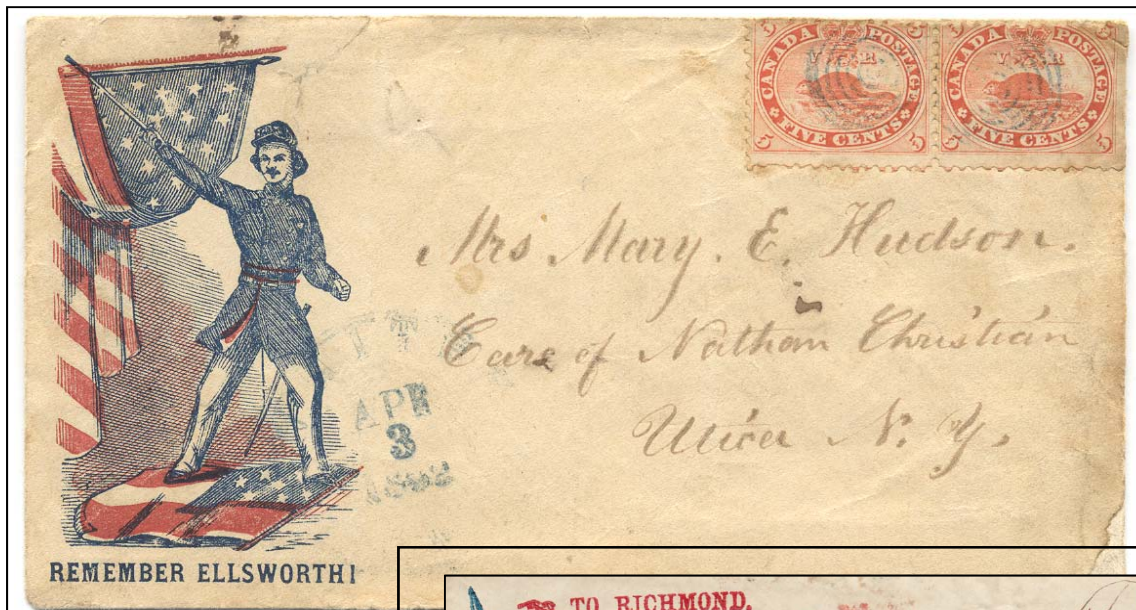 CANADA POSTAGE
V R
FIVE CENTS
5 5
CANADA POSTAGE
V R
FIVE CENTS
5 5
Mrs Mary. E. Hudson.
Care of Nathan Christian
Utica N. Y.
APR
3
REMEMBER ELLSWORTH!
TO RICHMOND.